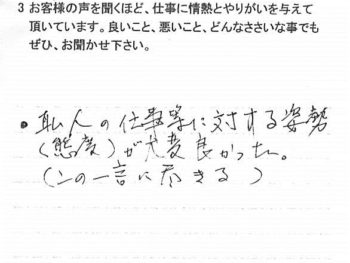 3 お客様の声を聞くほど、仕事に情熱とやりがいを与えて
頂いています。良いこと、悪いこと、どんなささいな事でも
ぜひ、お聞かせ下さい。
• 職人の仕事等に対する姿勢
(態度)が大変良かった。
(この一言に尽きる)